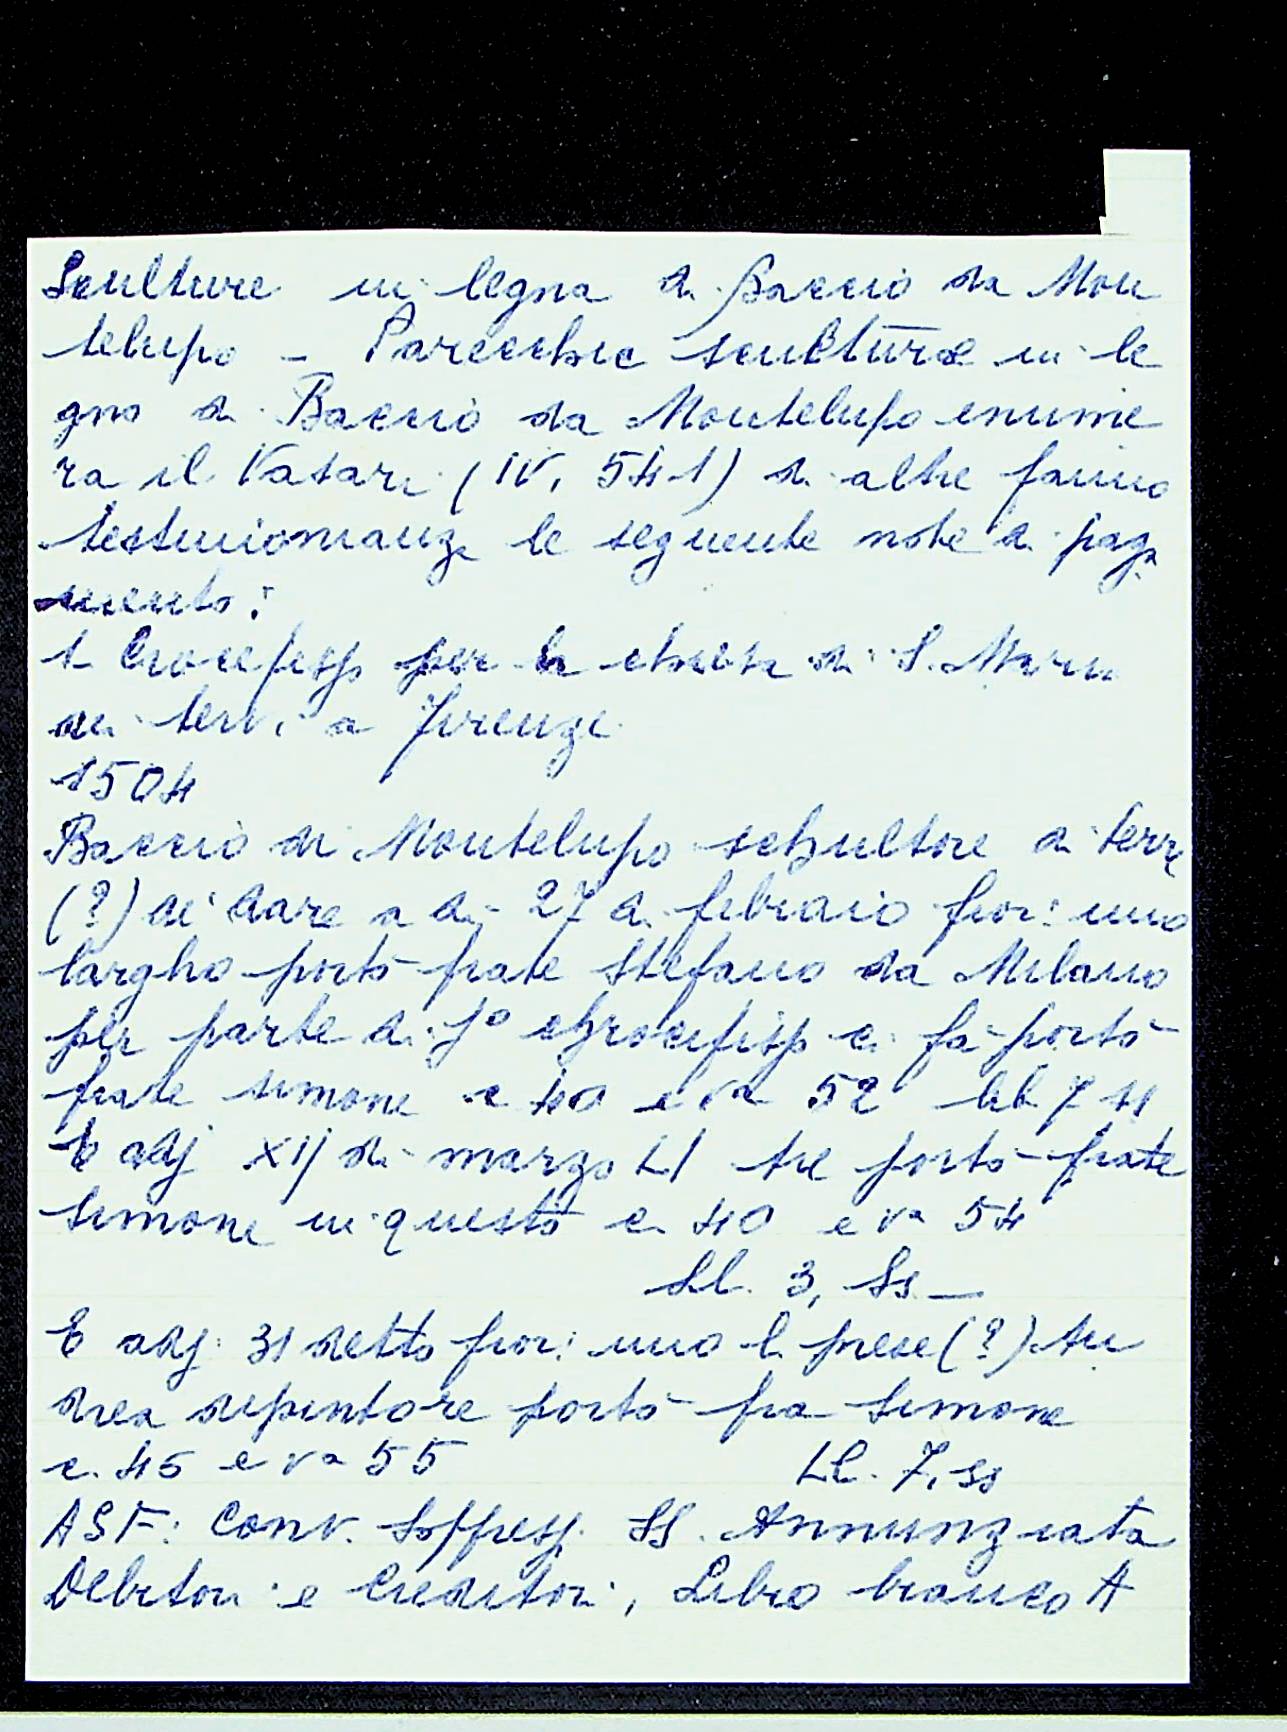 Sculture in legno di Baccio da Mon
telupo - Parecchie sculture in le
gno di Baccio da Montelupo enume
ra il Vasari (IV, 541) di altre fanno
testimonianza le seguente note di paga
mento:
1 Crocefisso per la chiesa di S. Maria
dei Servi a Firenze
1504
Baccio di Montelupo schultore di terra
(?) de' dare a dì 27 di febraio fior: uno
largho portò frate Stefano da Milano
per parte di 1º chrocifisso ci fa portò
frate Simone c 40 e va 52 lib 7 
E adj XIJ di marzo L1 tre portò frate
Simone in questo c. 40 e va 54
Ll. 3, Ss —
E adj: 31 detto fior: uno l. prese (?) An
drea dipintore portò fra Simone
c. 45 e va 55 Ll. 7, ss
ASF: Conv. Soppress. SS. Annunziata
Debitori e Creditori, Libro bianco A